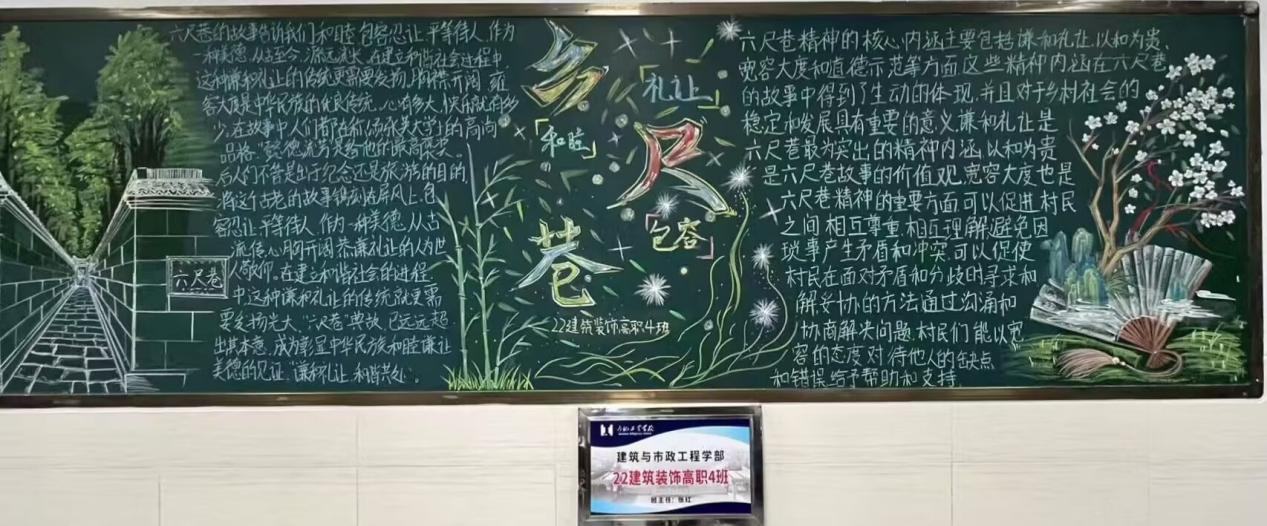 六尺巷的故事告诉我们和睦包容忍让平等待人,作为
一种美德,从古至今,流远流长,在建立和谐社会过程中
这种谦和礼让的传统更需要发扬,胸襟开阔,雍
容大度是中华民族的优良传统,心有多大,快乐就有多
少,在故事中人们都在称
品格。
后人们不管是出于纪念还是旅游的目的
将这个古老的故事镌刻在屏风上,包
容忍让,平等待人,作为一种美德,从古
流传,心胸开阔,恭谦礼让的人为世
人敬仰,在建立和谐社会的进程
中这种谦和礼让的传统就更需
要发扬光大,“六尺巷”典故,已远远超
出其本意,成为彰显中华民族和睦谦让
美德的见证,谦和礼让,和谐共处。
六尺巷
六
尺
巷
「礼让」
「和睦」
「包容」
22建筑装饰高职4班
六尺巷精神的核心内涵主要包括谦和礼让,以和为贵、
宽容大度和道德示范等方面这些精神内涵在六尺巷
的故事中得到了生动的体现,并且对于乡村社会的
稳定和发展具有重要的意义,谦和礼让是
六尺巷最为突出的精神内涵,以和为贵
是六尺巷故事的价值观,宽容大度也是
六尺巷精神的重要方面可以促进村民
之间相互尊重,相互理解,避免因
琐事产生矛盾和冲突,可以促使
村民在面对矛盾和分歧时寻求和
解妥协的方法通过沟通和
协商解决问题,村民们能以宽
容的态度对待他人的缺点
和错误给予帮助和支持.
建筑与市政工程学部
22建筑装饰高职4班
班主任:张红